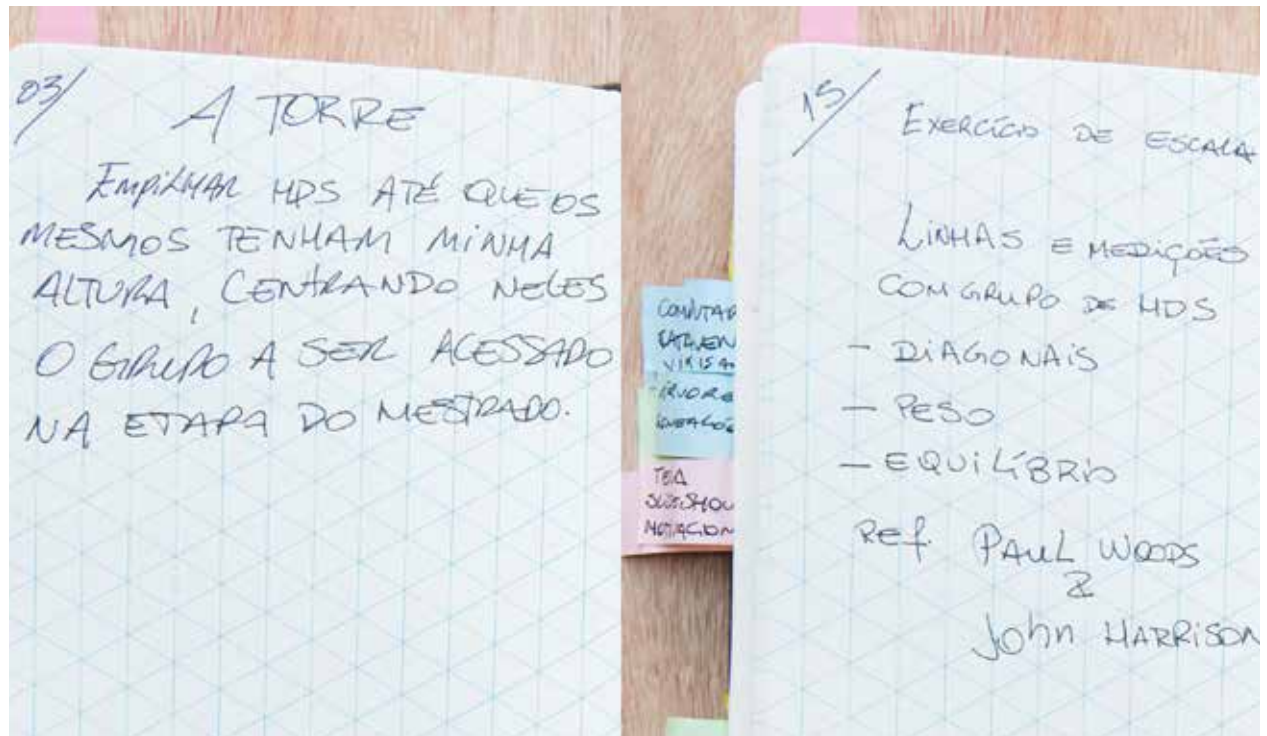 03/
A TORRE
EMPILHAR HDS ATÉ QUE OS
MESMOS TENHAM MINHA
ALTURA, CENTRANDO NELES
O GRUPO A SER ACESSADO
NA ETAPA DO MESTRADO.
TEA
15/
EXERCÍCIO DE ESCALA
LINHAS E MEDIÇÕES
COM GRUPO DE HDS
- DIAGONAIS
- PESO
- EQUILÍBRIO
Ref. PAUL WOODS
&
John HARRISON